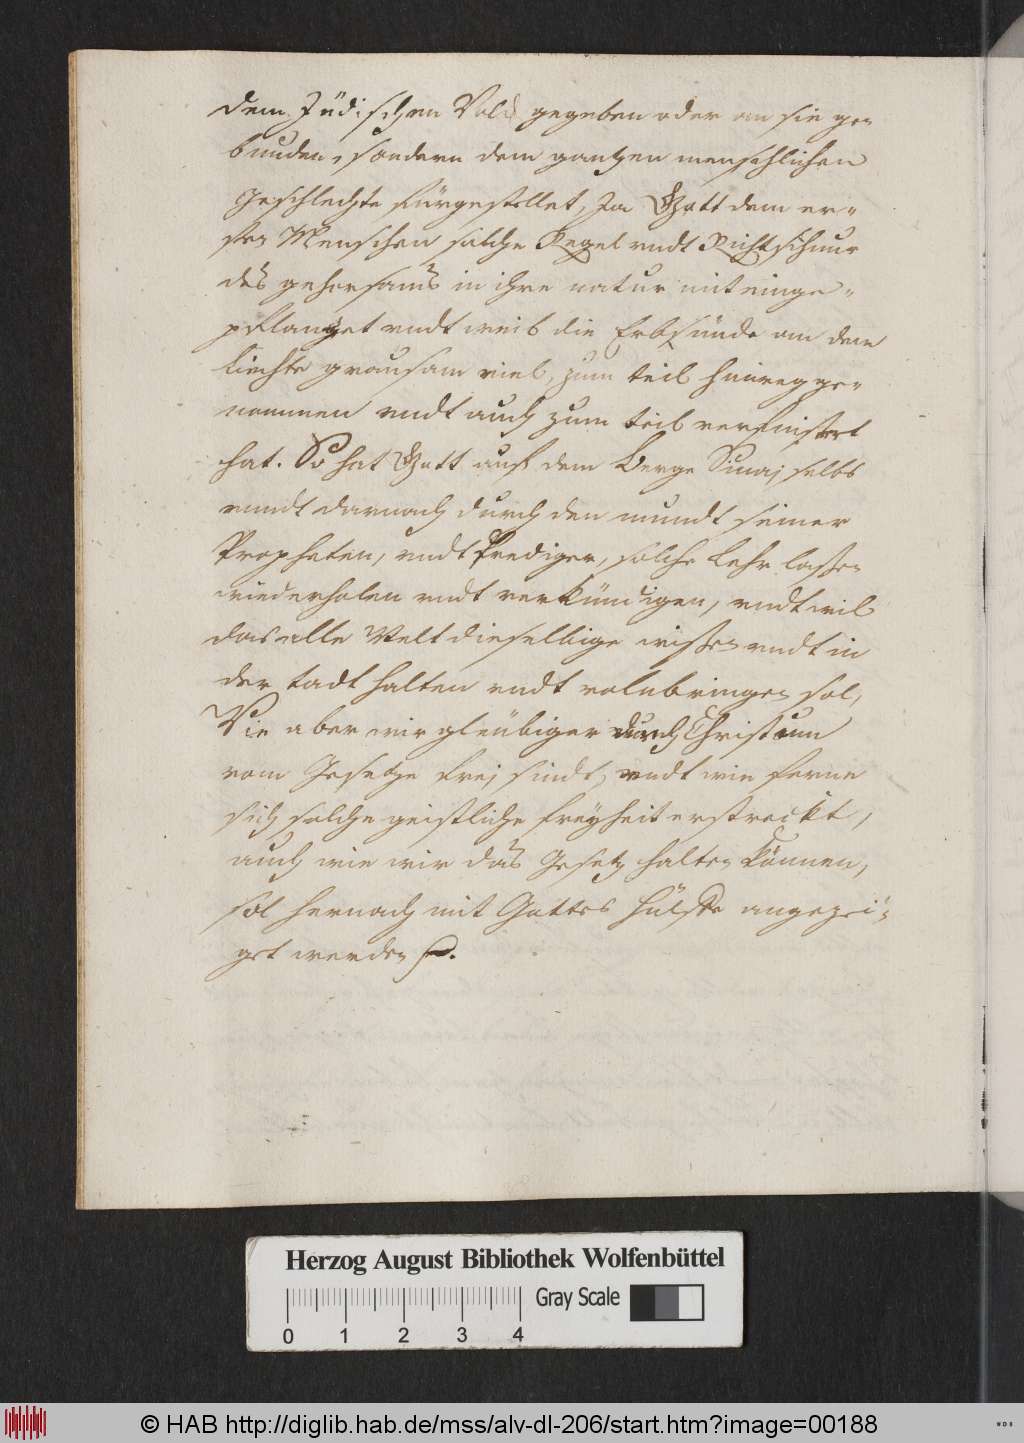 dem Jüdischen Volck gegeben oder an sie ge=
bunden, sondern dem gantzen menschlichen
Geschlechte fürgestellet, Ja Gott dem er=
sten Menschen solche Regel undt Richtschnur
des gehorsams in ihre natur mit einge=
pflantzet undt weil die Erbsünde an dem
liechte grausam viel, zum teil hinweg ge=
nommen undt auch zum teil verfinstert
hat. So hat Gott auf dem Berge Sinaj selbs
unndt darnach durch den mundt seiner
Propheten, undt Prediger, solche Lehr lassen
wiederholen undt verkündigen, undt wil
das alle Welt dieselbige wissen undt in
der tadt halten undt volnbringen sol,
Wie aber wir gleubiger durch Christum
vom Gesetze frej sindt, undt wie ferne
sich solche geistliche freyheit erstreckt,
auch wie wir das Gesetz halten können,
sol hernach mit Gottes hülffe angezei=
get werden
Herzog August Bibliothek Wolfenbüttel
Gray Scale
0 1 2 3 4
© HAB http://diglib.hab.de/mss/alv-dl-206/start.htm?image=00188